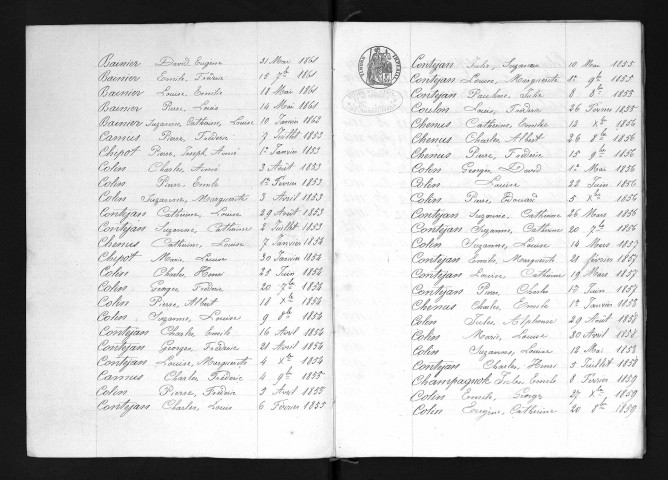 Bainier David Eugène 31 Mai 1861
Bainier Emile, Frédéric 15 7bre 1861
Bainier Louise Emilie 18 Mai 1861
Bainier Pierre, Louis 14 Mai 1861
Bainier Suzanne, Catherine, Louise 10 Janvier 1862
Camus Pierre, Frédéric 7 Juillet 1853
Chipot Pierre, Joseph Aimé 1er Janvier 1853
Colin Charles, Aimé 3 Août 1853
Colin Pierre, Emile 1er Février 1853
Colin Suzanne, Marguerite 3 Avril 1853
Contejan Catherine, Louise 29 Août 1853
Contejan Suzanne, Catherine 2 Juillet 1853
Chenus Catherine, Louise 7 Janvier 1854
Chipot Marie, Louise 30 Janvier 1854
Colin Charles Henri 25 Juin 1854
Colin Georges Frédéric 20 7bre 1854
Colin Pierre, Albert 18 Xbre 1854
Colin Suzanne, Louise 9 8bre 1854
Contejan Charles Emile 16 Avril 1854
Contejan Georges, Frédéric 21 Avril 1854
Contejan Louise, Marguerite 4 Xbre 1854
Camus Charles Frédéric 4 9bre 1855
Colin Pierre, Frédéric 3 Avril 1855
Contejan Charles, Louis 6 Février 1855
TIMBRE IMPERIAL
Contejan Julie, Suzanne 10 Mai 1855
Contejan Louise, Marguerite 1er 9bre 1855
Contejan Pauline Julie 8 8bre 1855
Coulon Louis, Frédéric 26 Février 1855
Chenus Catherine, Emilie 12 Xbre 1856
Chenus Charles Albert 26 8bre 1856
Chenus Pierre, Frédéric 15 9bre 1856
Colin Georges David 1er Mai 1856
Colin Louise 22 Juin 1856
Colin Pierre, Edouard 5 Xbre 1856
Contejan Suzanne, Catherine 26 Mars 1856
Contejan Suzanne, Catherine 20 7bre 1856
Colin Suzanne, Louise 14 Mars 1857
Contejan Emilie, Marguerite 28 février 1857
Contejan Louise, Catherine 19 Mars 1857
Contejan Pierre Charles 17 Juin 1857
Chenus Charles, Emile 1er Janvier 1858
Colin Jules, Alphonse 29 Août 1858
Colin Marie, Louise 30 Avril 1858
Colin Suzanne, Louise 12 Mai 1858
Contejan Charles, Henri 5 Juillet 1858
Champagnok Jules, Emile 8 Février 1859
Colin Emile, George 27 Xbre 1859
Colin Eugène, Catherine 20 8bre 1859